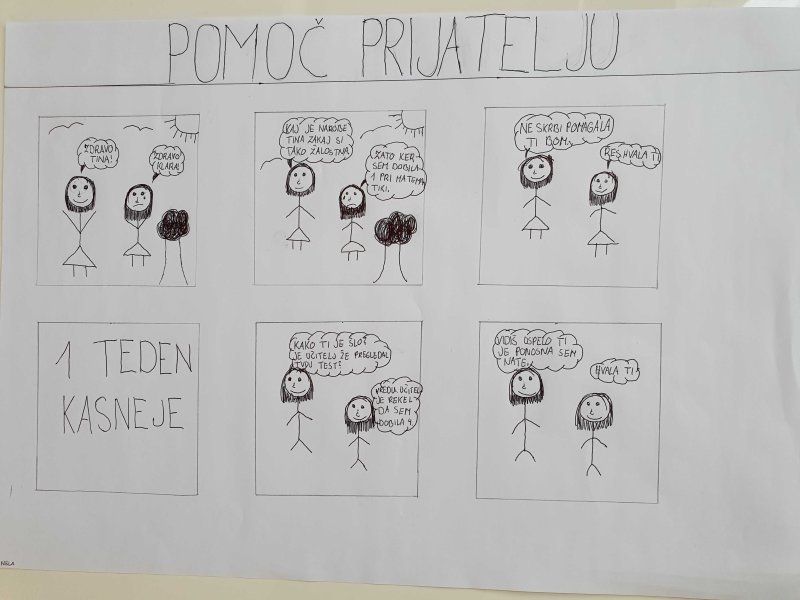 POMOČ PRIJATELJU
ZDRAVO
TINA!
ZDRAVO
KLARA!
KAJ JE NAROBE
TINA ZAKAJ SI
TAKO ŽALOSTNA
ZATO KER
SEM DOBILA
1 PRI MATEMA
TIKI.
NE SKRBI POMAGALA
TI BOM.
RES HVALA TI
1 TEDEN
KASNEJE
KAKO TI JE ŠLO?
JE UČITELJ ŽE PREGLEDAL
TVOJ TEST?
VREDU. UČITELJ
JE REKEL
DA SEM
DOBILA 4.
VIDIŠ USPELO TI
JE PONOSNA SEM
NATE.
HVALA TI
NELA